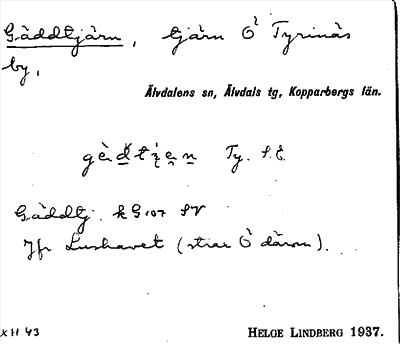 Gäddtjärn, tjärn Ö Tyrinäs
by,
Älvdalens sn, Älvdals tg, Kopparbergs län.
Ty. S.E.
Gäddtj. kG 107 SV
Jfr Lushavet (strax Ö därom).
XII 43
HELGE LINDBERG 1937.